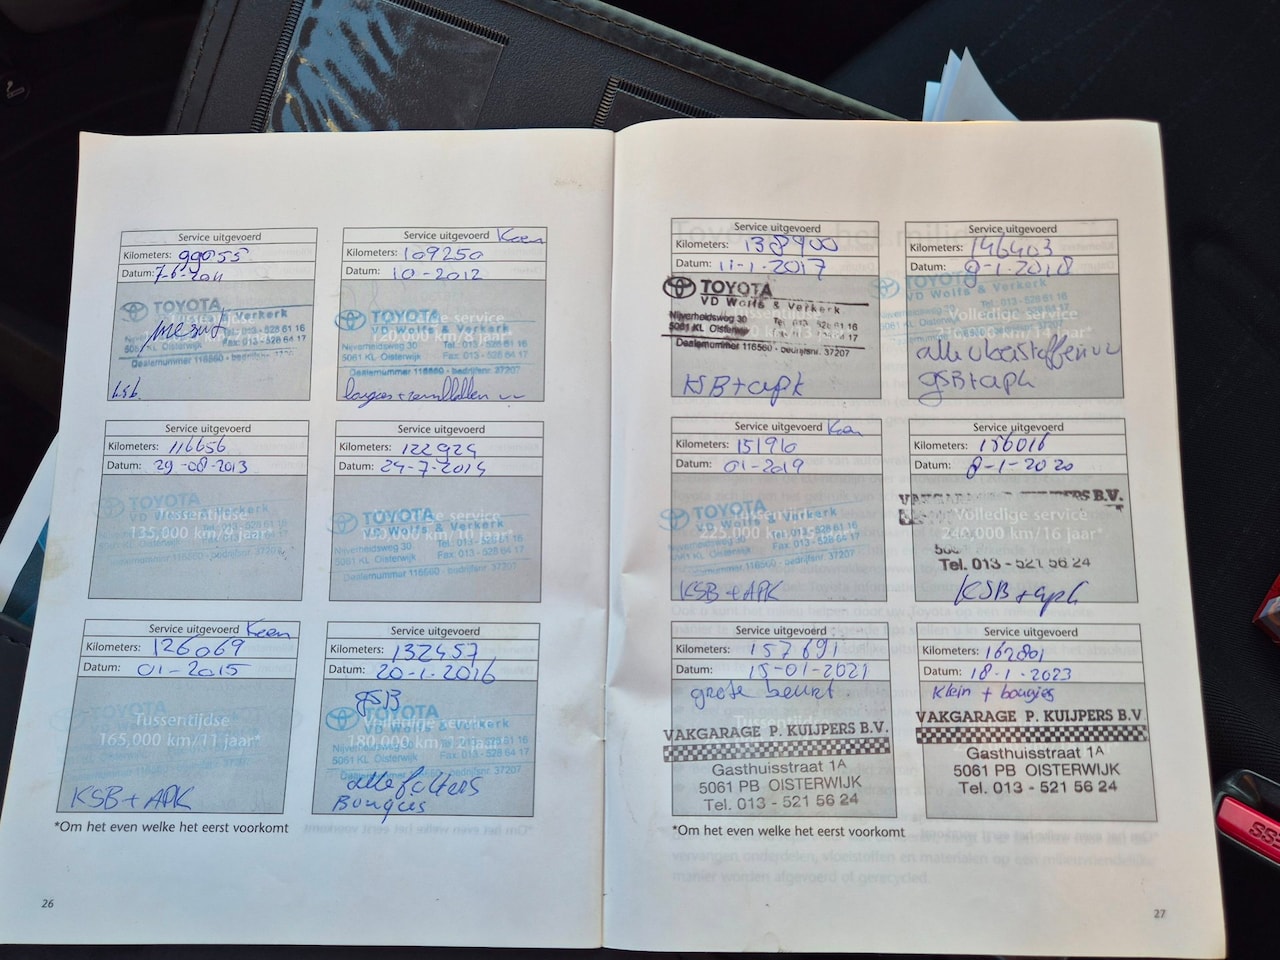 Service uitgevoerd
Kilometers: 99055
Datum: 7-6-2011
TOYOTA
Verkerk
Tel.: 013 - 528 61 16
KL Oisterwijk
Dealernummer 116560 - bedrijfsnr. 37207
ksb
Service uitgevoerd Koen
Kilometers: 109250
Datum: 10-2012
TOYOTA
VD Wolfs & Verkerk
Volledige service
120,000 km/8 jaar*
Nijverheidsweg 30
5061 KL Oisterwijk
Tel. 013 - 528 61 16
Fax. 013 - 528 64 17
Dealernummer 116560 - bedrijfsnr. 37207
Service uitgevoerd
Kilometers: 116656
Datum: 29-08-2013
TOYOTA
Tussentijdse
135,000 km/9 jaar*
Service uitgevoerd
Kilometers: 122924
Datum: 24-7-2014
TOYOTA
VD Wolfs & Verkerk
Nijverheidsweg 30
5061 KL Oisterwijk
Tel. 013 - 528 61 16
Fax. 013 - 528 64 17
Dealernummer 116560 - bedrijfsnr. 37207
Service uitgevoerd Koen
Kilometers: 126069
Datum: 01-2015
Tussentijdse
165,000 km/11 jaar*
KSB + APK
Service uitgevoerd
Kilometers: 132457
Datum: 20-1-2016
gSB
TOYOTA
VD Wolfs & Verkerk
Volledige service
180,000 km/12 jaar*
alle filters
Bougies
*Om het even welke het eerst voorkomt
26
Service uitgevoerd
Kilometers: 138900
Datum: 11-1-2017
TOYOTA
VD Wolfs & Verkerk
Nijverheidsweg 30
5061 KL Oisterwijk
Tel. 013 - 528 61 16
Fax. 013 - 528 64 17
Dealernummer 116560 - bedrijfsnr. 37207
KSB + apk
Service uitgevoerd
Kilometers: 146403
Datum: 9-1-2018
TOYOTA
VD Wolfs & Verkerk
Volledige service
210,000 km/14 jaar*
alle vloeistoffen vv
gSB + apk
Service uitgevoerd Koen
Kilometers: 151916
Datum: 01-2019
TOYOTA
VD Wolfs & Verkerk
Nijverheidsweg 30
5061 KL Oisterwijk
Tel. 013 - 528 61 16
Fax. 013 - 528 64 17
Dealernummer 116560 - bedrijfsnr. 37207
KSB + APK
Service uitgevoerd
Kilometers: 156016
Datum: 8-1-2020
Volledige service
240,000 km/16 jaar*
Tel. 013 - 521 56 24
KSB + apk
Service uitgevoerd
Kilometers: 157691
Datum: 15-01-2021
grote beurt
Tussentijdse
VAKGARAGE P. KUIJPERS B.V.
Gasthuisstraat 1A
5061 PB OISTERWIJK
Tel. 013 - 521 56 24
Service uitgevoerd
Kilometers: 162801
Datum: 18-1-2023
Klein + bougies
VAKGARAGE P. KUIJPERS B.V
Gasthuisstraat 1A
5061 PB OISTERWIJK
Tel. 013 - 521 56 24
*Om het even welke het eerst voorkomt
27